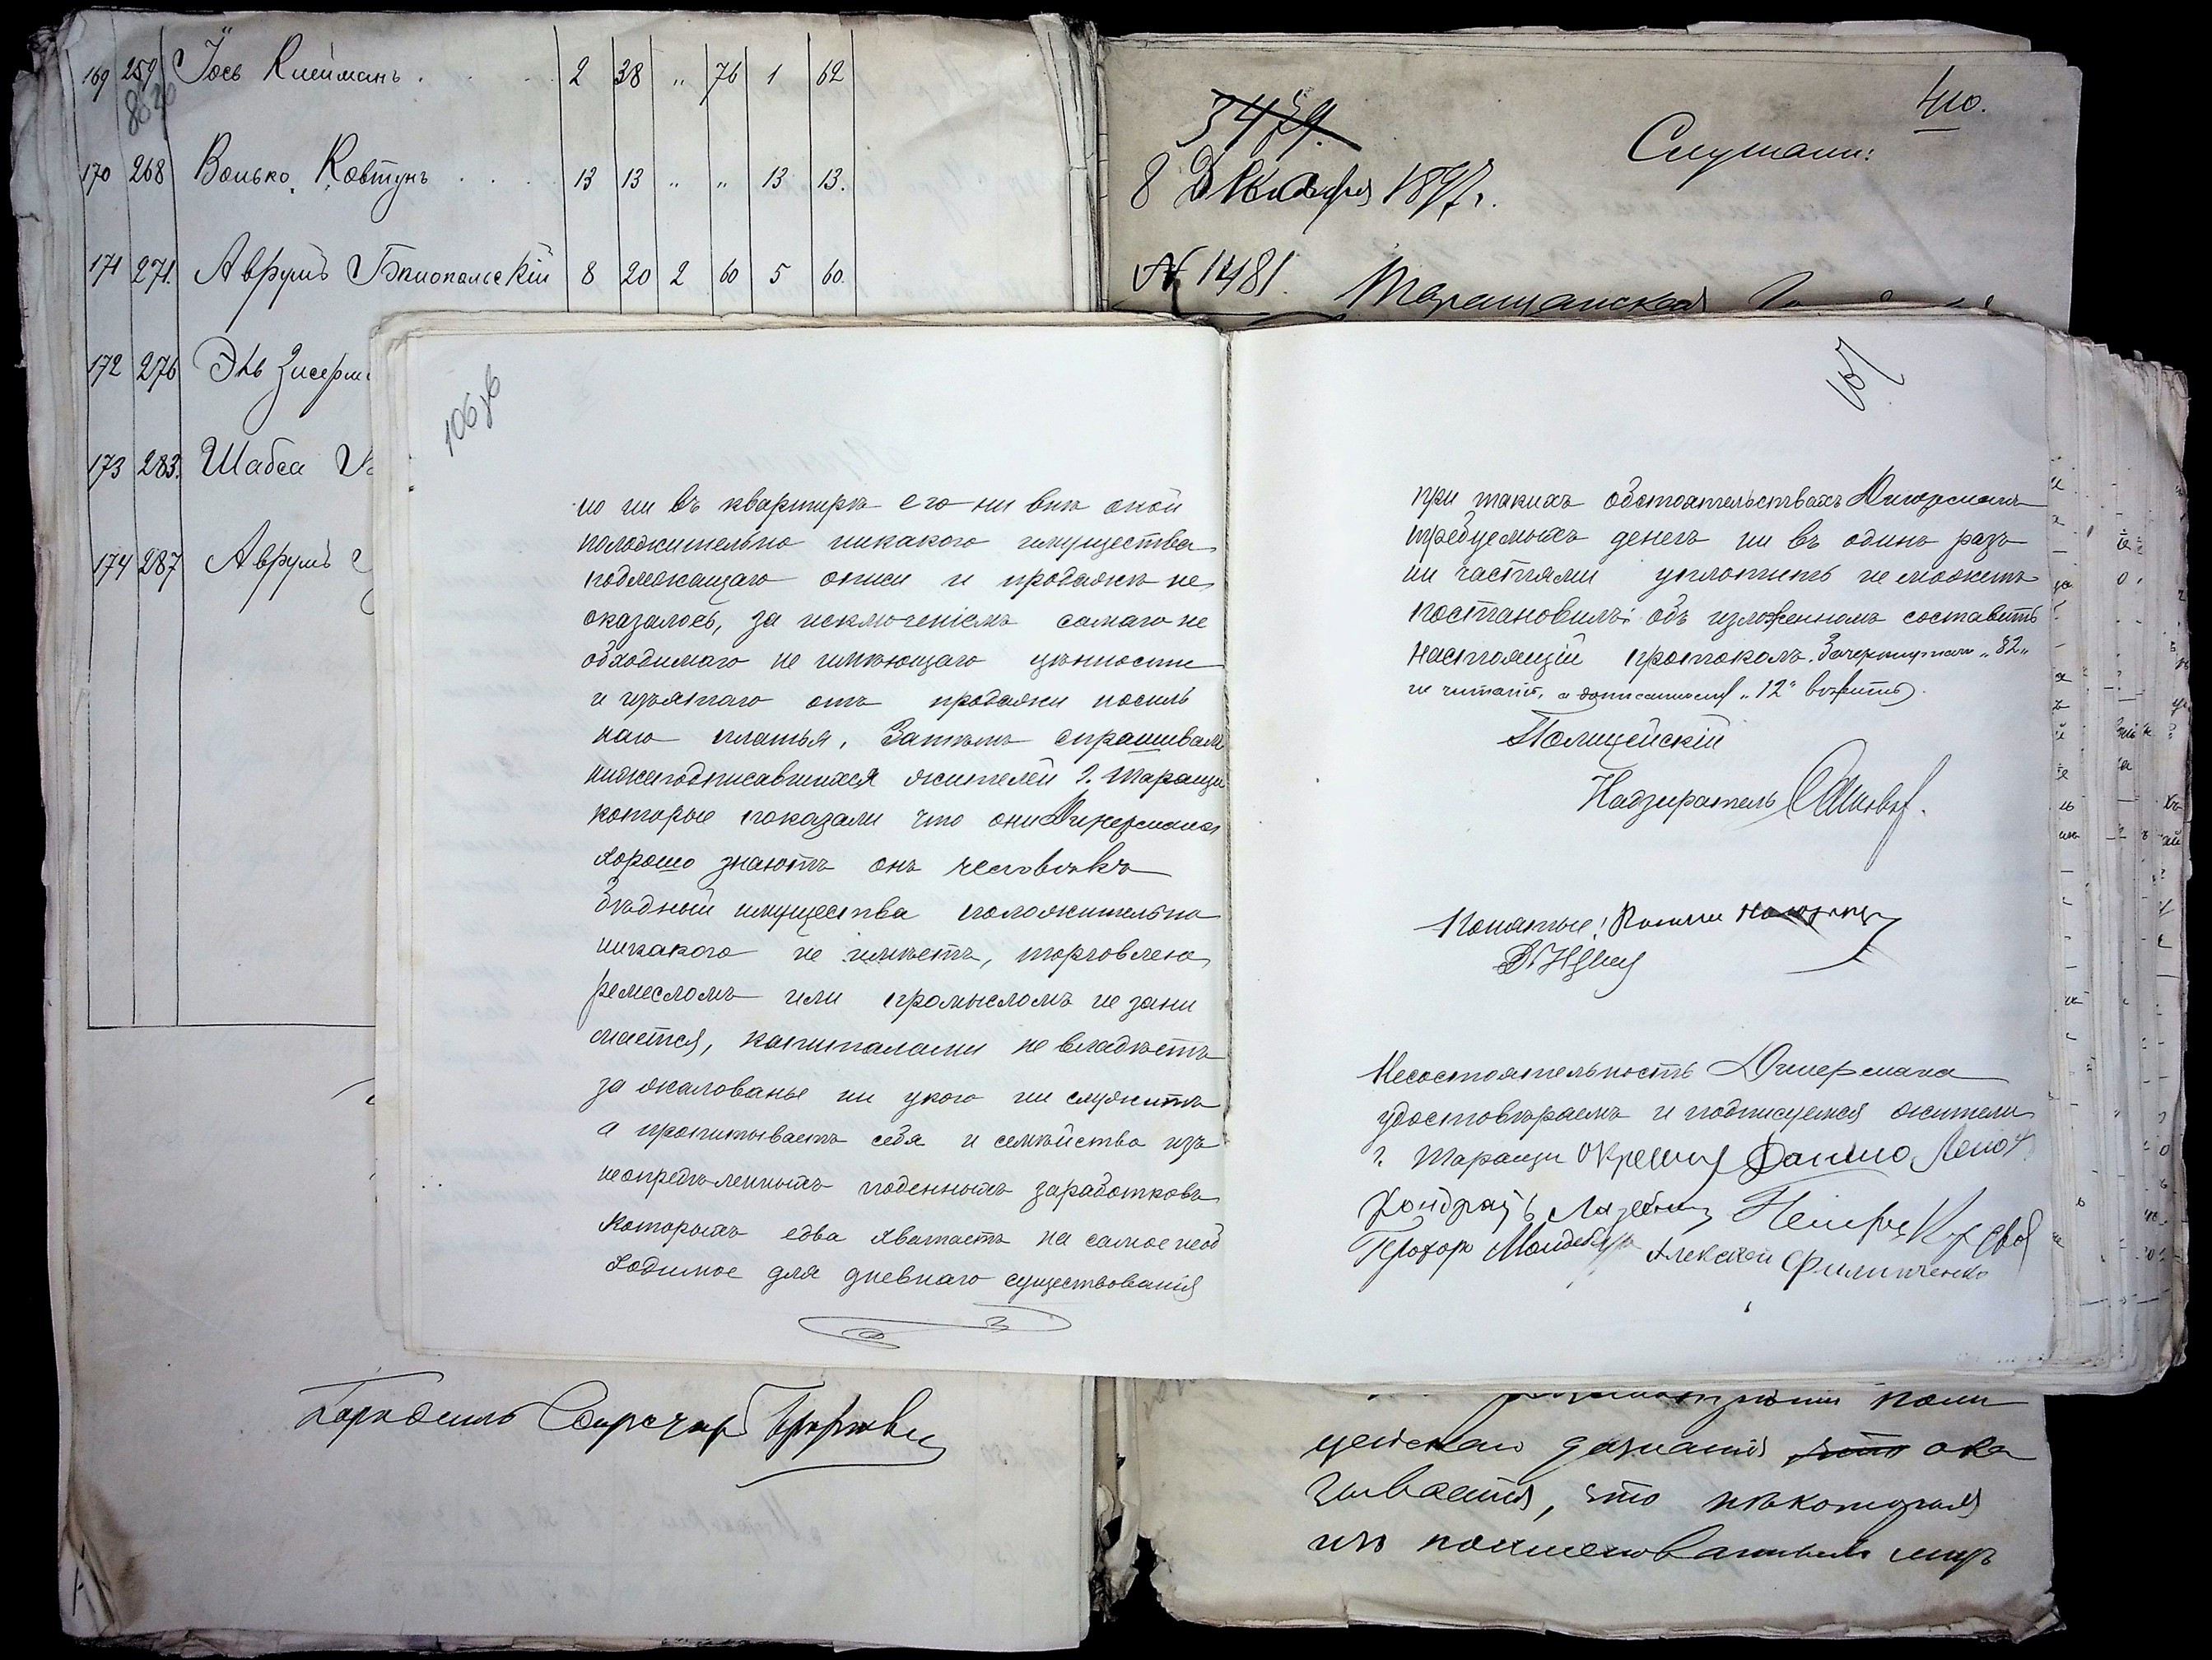 169 259 Іось Клейманъ . . . . 2 38 „ 76 1 62
170 268 Волько Ковтунъ . . . . 13 13 „ „ 13 13.
171 271. Аврумъ Бялопольскій 8 20 2 60 5 60.
172 276 Эль
173 283. Шабса
174 287 Аврумъ
410.
Слушали:
8 Декабря 1897 г.
№ 1481.
Таращанская
106 об
но ни въ квартирѣ его ни внѣ оной
положительно никакого имущества
подлежащаго описи и продажѣ не
оказалось, за исключеніемъ самаго не
обходимаго не имѣющаго цѣнности
и изъятаго отъ продажи носиль
наго платья. Затѣмъ спрашивалъ
нижеподписавшихся жителей г. Таращи
которые показали что они Дикермана
хорошо знаютъ онъ человѣкъ
бѣдный имущества положительно
никакого не имѣетъ, торговлею
ремесломъ или промысломъ не зани
мается, капиталами не владѣетъ
за жалованье ни укого ни служитъ
а пропитываетъ себя и семейство изъ
неопредѣленныхъ поденныхъ заработковъ
которыхъ едва хватаетъ на самое необ
ходимое для дневнаго существованія
107
при такихъ обстоятельствахъ Дикерманъ
требуемыхъ денегъ ни въ одинъ разъ
ни частями уплатить не можетъ
постановилъ: объ изложенномъ составить
настоящій протоколъ. Зачеркнутое „82„
не читать, а дописанное „12“ вѣрить.
Полицейскій
Надзиратель
Понятые:
Несостоятельность Дикермана
удостовѣряемъ и подписуемся жители
г. Таращи
Кондратъ Лазебникъ
Прохор Алексѣй Филипченко
цейскаго дознанія что ока
зывается, что нѣкоторыя
изъ поименованныхъ лицъ